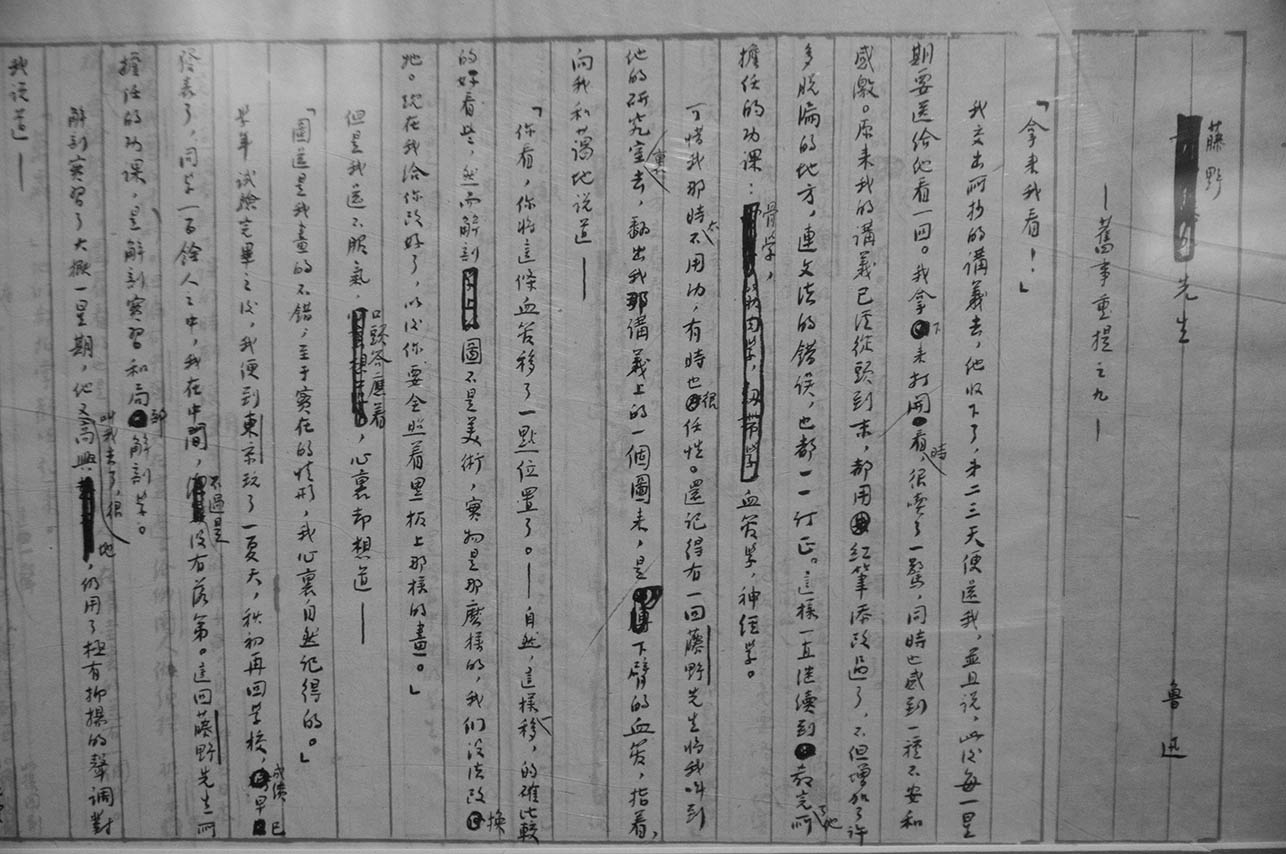 藤野先生
魯迅
——舊事重提之九——
「拿来我看！」
我交出所抄的講義去，他收下了，第二三天便還我，並且说，此後每一星
期要送给他看一回。我拿下来打開看時，很喫了一驚，同時也感到一種不安和
感激。原来我的講義已经從頭到末，都用红筆添改過了，不但增加了许
多脱漏的地方，連文法的错误，也都一一订正。這樣一直继續到教完了他所
擔任的功课：骨学，血管学，神經学。
可惜我那時太不用功，有時也很任性。還记得有一回藤野先生将我叫到
他的研究室裏去，翻出我那講義上的一個圖来，是下臂的血管，指着，
向我和蔼地说道——
「你看，你将這條血管移了一點位置了。——自然，這樣一移，的確比較
的好看些，然而解剖圖不是美術，實物是那麼樣的，我们没法改換
她。现在我给你改好了，以後你要全照着黑板上那樣的畫。」
但是我還不服氣，口頭答應着，心裏却想道——
「圖還是我畫的不错；至于實在的情形，我心裏自然记得的。」
学年試驗完畢之後，我便到東京玩了一夏天，秋初再回学校，成绩早已
發表了，同学一百餘人之中，我在中間，不過是没有落第。這回藤野先生所
擔任的功课，是解剖實習和局部解剖学。
解剖實習了大概一星期，他又叫我去了，很高興地，仍用了極有抑揚的聲調對
我说道——